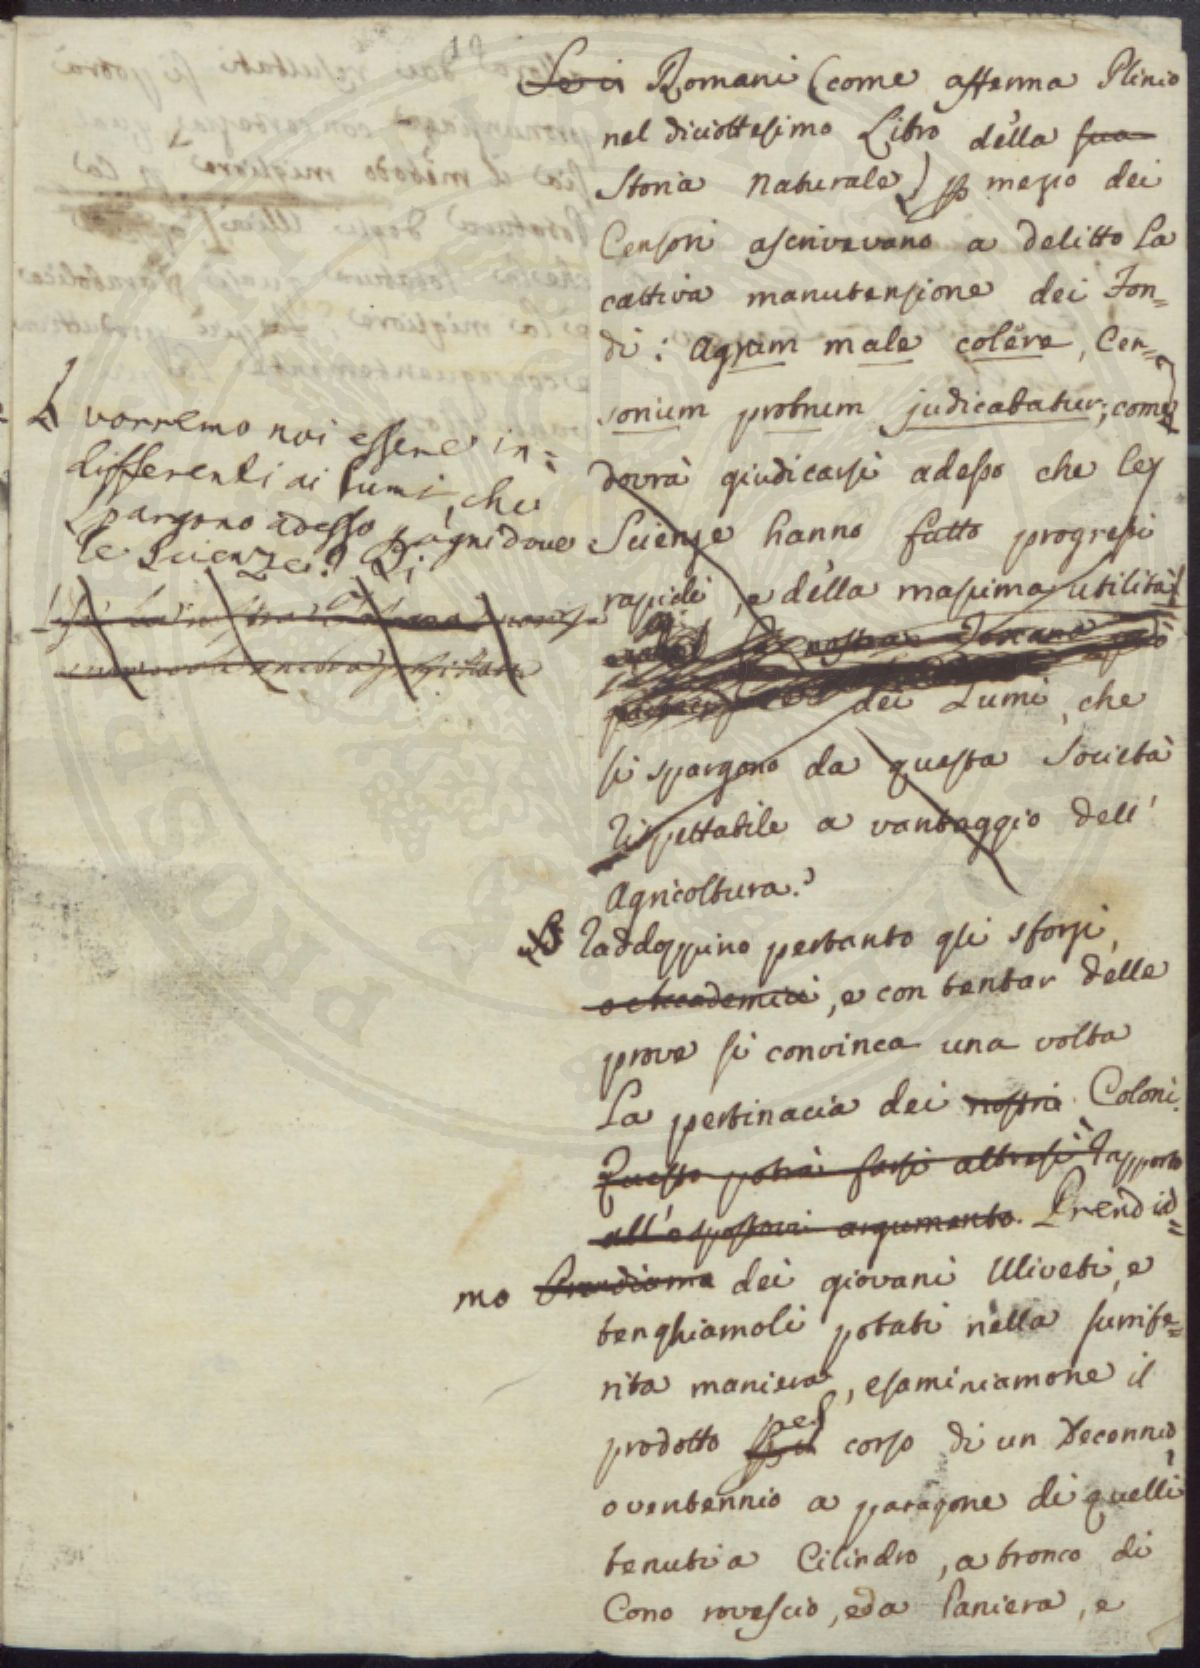 19
Se i Romani (come afferma Plinio
nel diciottesimo Libro della sua
Storia Naturale) p mezzo dei
Censori ascrivevano a delitto la
cattiva manutenzione dei Fon=
di: Agrum male colere, Cen=
sorium probrum judicabatur; come
dovrà giudicarsi adesso che le
Scienze hanno fatto progressi
rapidi, e della massima utilità
nostra Toscana
dei Lumi, che
si spargono da questa Società
rispettabile a vantaggio dell'
Agricoltura?
vorremo noi essere in=
differenti ai lumi, che
spargono adesso p ogni dove
le Scienze? Si
Raddoppino pertanto gli sforzi,
o Accademici, e con tentar delle
prove si convinca una volta
La pertinacia dei nostri Coloni.
Questo potrà farsi altresì rapporto
all'espostovi argumento. Prendia=
mo Prendiamo dei giovani Uliveti, e
tenghiamoli potati nella surrife=
rita maniera, esaminiamone il
prodotto pel corso di un Decennio,
o ventennio a paragone di quelli
tenuti a Cilindro, a tronco di
Cono rovescio, e da Paniera, e